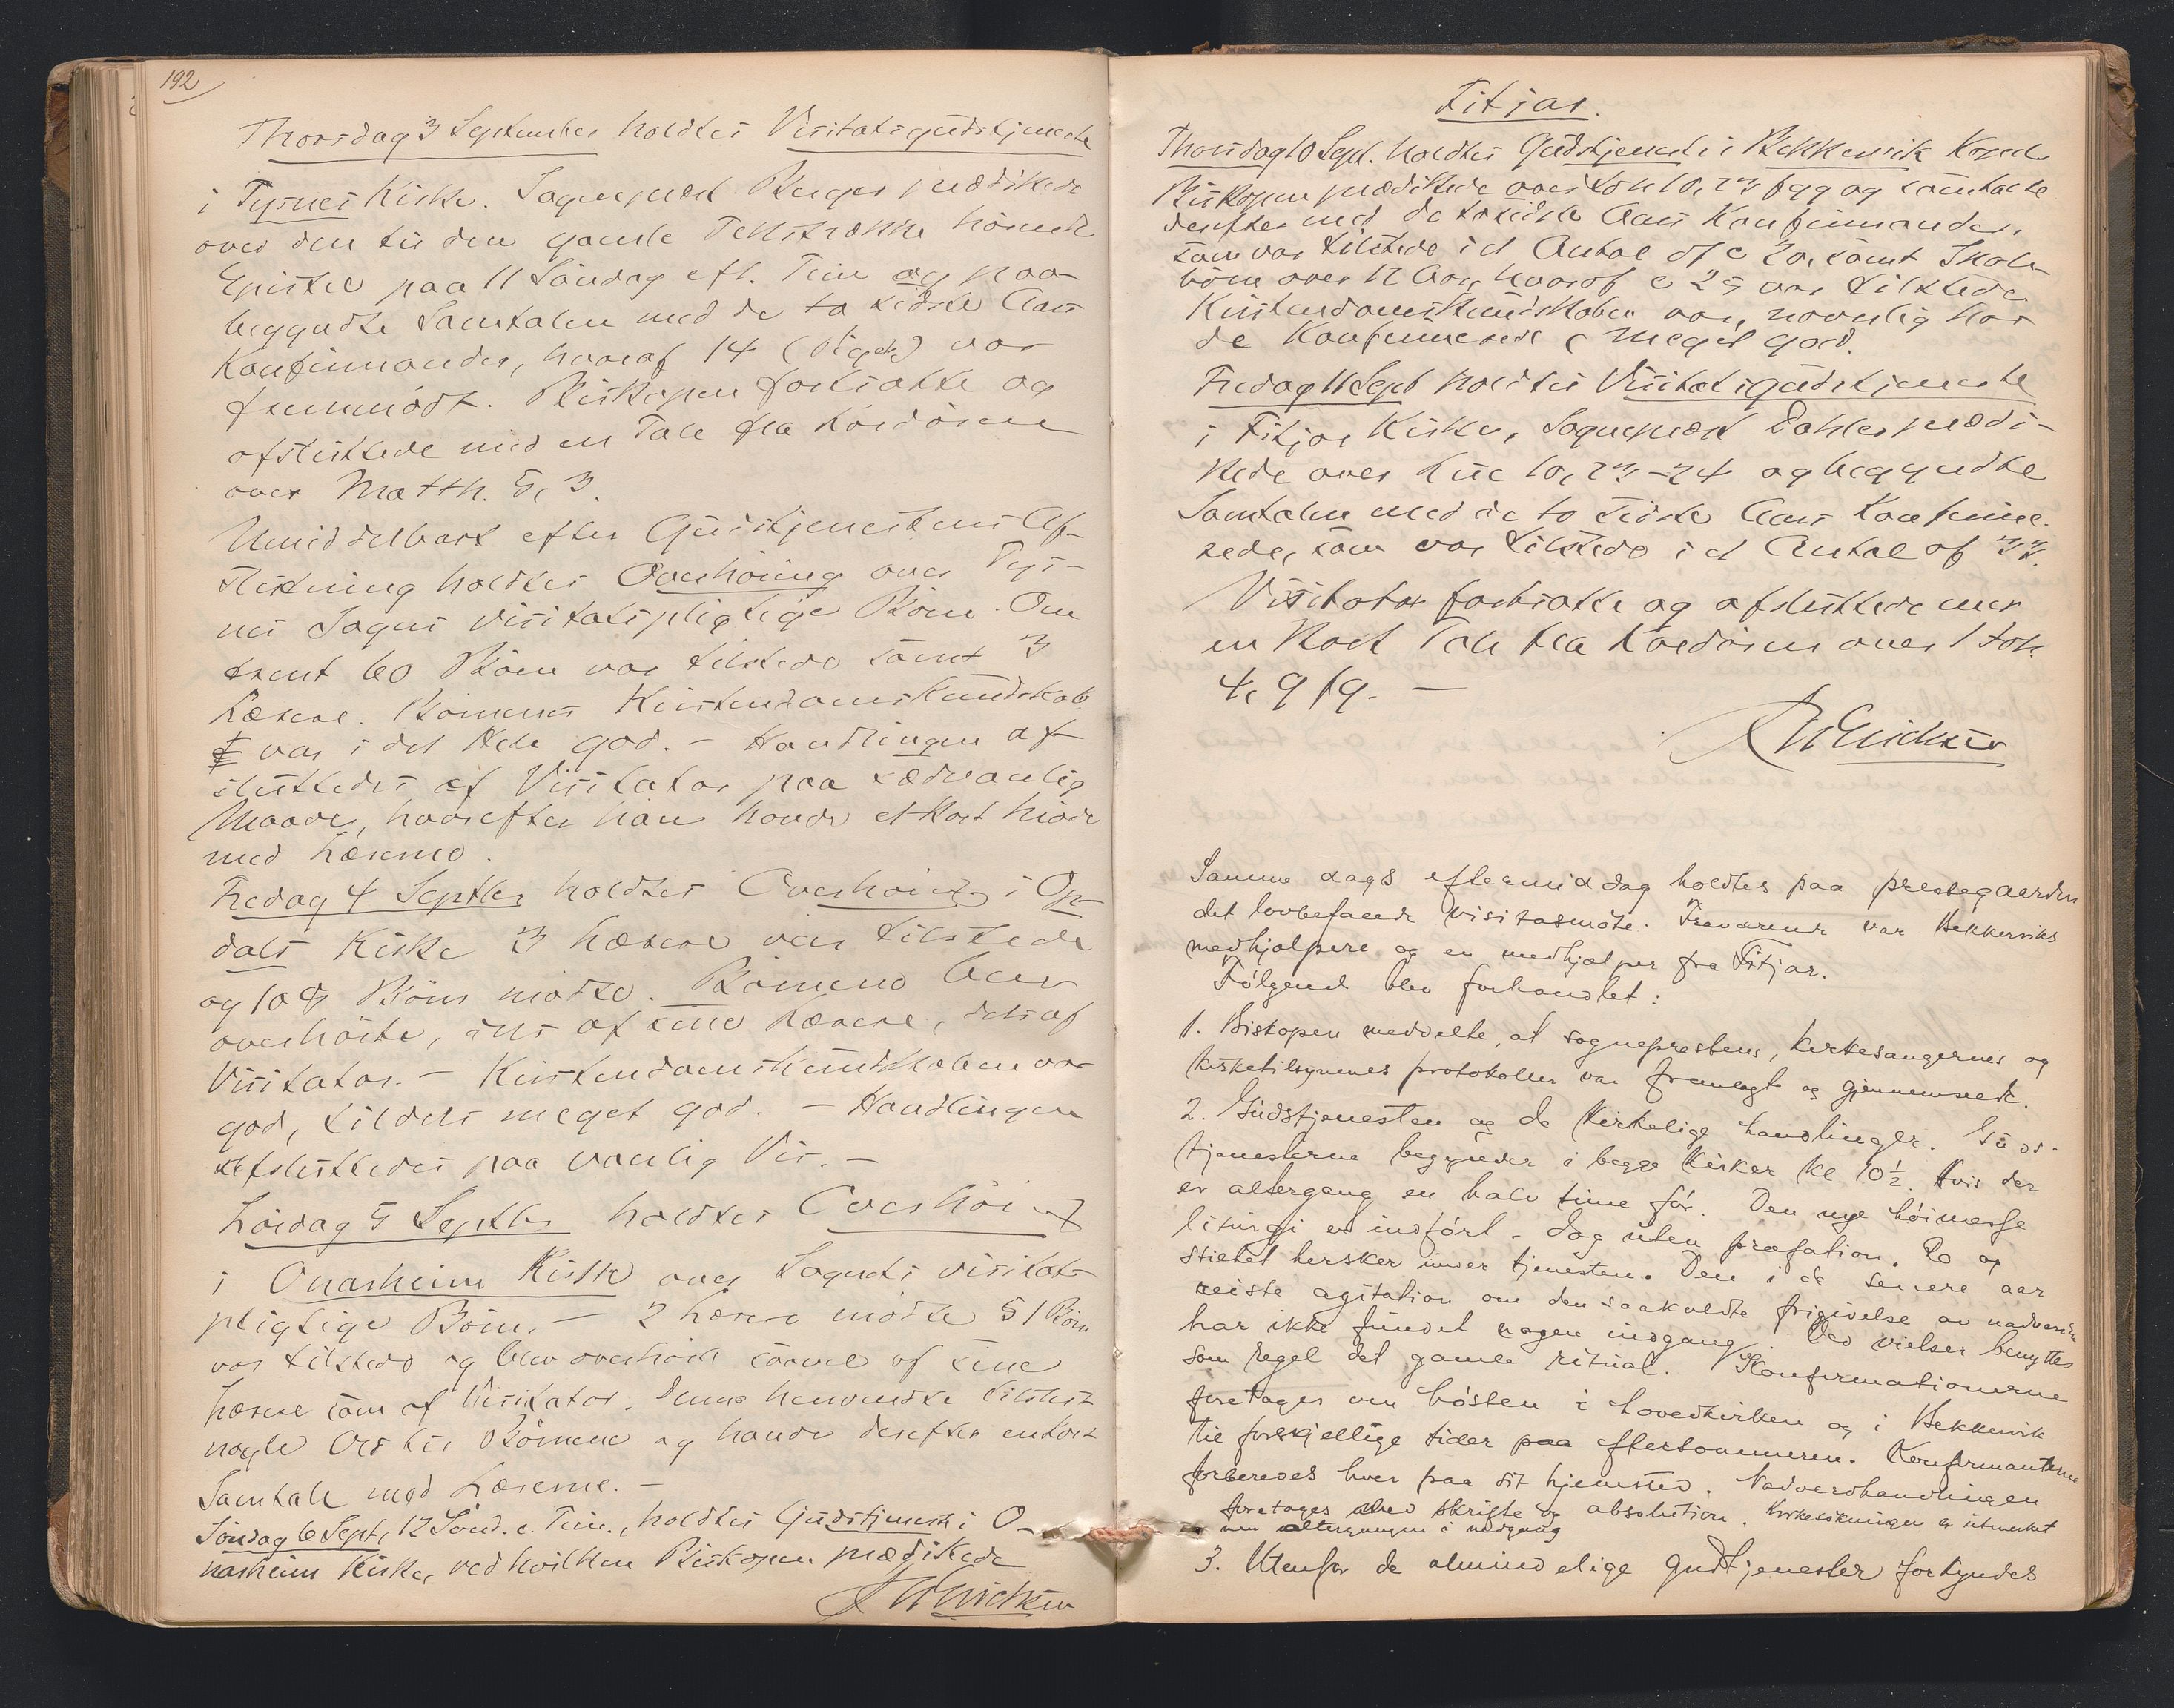 192
Thorsdag 3 September holdtes Visitatsgudstjeneste
i Tysnes Kirke. Sogneprest Berges prædikede
over den til den gamle Textrække hörende
Epistel paa 11 Söndag eft. Trin og paa-
begyndte Samtalen med de to sidste Aars
Konfirmander, hvoraf 14 (Piger) var
fremmödt. Biskopen fortsatte og
afsluttede med en Tale fra Kordören
over Matth. 5, 3.
Umiddelbart efter Gudstjenestens Af-
slutning holdtes Overhöring over Tys-
nes Sogns visitatspligtige Börn. Om
trent 60 Börn var tilstede samt 3
Lærere. Börnenes Kristendomskundskab
var i det Hele god. - Handlingen af
sluttedes af Visitator paa sædvanlig
Maade, hvorefter han havde et kort Möde
med Lærerne.
Fredag 4 Septbr holdtes Overhöring i Op-
dals Kirke 3 Lærere var tilstede
og Börn mödte. Börnene blev
overhörte, dels af sine Lærere, dels af
Visitator. - Kristendomskundskaben var
god, tildels meget god. - Handlingen
afsluttedes paa vanlig Vis. -
Lördag 5 Septbr holdtes Overhöring
i Onarheim Kirke over Sognets visitats-
pligtige Börn. - 2 Lærere mödte 51 Börn
var tilstede og blev overhört saavel af sine
Lærere som af Visitator. Denne henvendte tilslut
nogle Ord til Börnene og havde derefter en kort
Samtale med Lærerne. -
Söndag 6 Sept, 12 Sönd. e. Trin., holdtes Gudstjeneste i O-
narheim Kirke, ved hvilken Biskopen prædikede
Fitjar.
Thorsdag 10 Sept. holdtes Gudstjeneste i Bekkervik Kapel.
Biskopen prædikede over Joh 10, 23 fgg og samtalte
derefter med de to sidste Aars Konfirmander,
som var tilstede i et Antal af c 20, samt Skole-
börn over 12 Aar, hvoraf c 25 var tilstede
Kristendomskundskaben var, navnlig hos
de Konfirmerede, meget god.
Fredag 11 Sept holdtes Visitatsgudstjeneste
i Fitjar Kirke, Sogneprest Dahler prædi-
kede over Luc 10, 23-24 og begyndte
Samtalen med de to sidste Aars Konfirme-
rede, som var tilstede i et Antal af
Visitator fortsatte og afsluttede med
en kort Tale fra Kordören over 1 Joh.
4, 9 fg. -
Samme dags eftermiddag holdtes paa prestegaarden
det lovbefalede visitasmöte. Nærværende var Bekkerviks
medhjælpere og en medhjælper fra Fitjar.
Fölgende blev forhandlet:
1. Biskopen meddelte, at sogneprestens, kirkesangernes og
kirketilsynenes protokoller var fremlagt og gjennemseet.
2. Gudstjenesten og de kirkelige handlinger. Guds-
tjenesterne begynder i begge kirker kl 10½. Hvis der
er altergang en halv time för. Den nye höimesse
liturgi er indfört. Dog uten præfation. Ro og
stilhet hersker under tjenesten. Den i de senere aar
reiste agitation om den saakaldte frigivelse av nadveren
har ikke fundet nogen indgang. Ved vielser benyttes
som regel det gamle ritual. Konfirmationerne
foretages om hösten i hovedkirken og i Bekkervik
til forskjellige tider paa eftersommeren. Konfirmanterne
forberedes hver paa sit hjemsted. Nadverdhandlingen
foretages med skrifte og absolution. Kirkesökningen er utmerket
men altergangen i nedgang
3. Utenfor de almindelige gudstjenester forkyndes